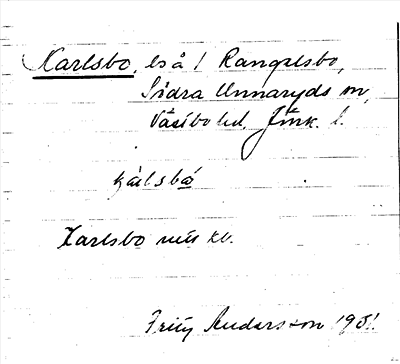 Karlsbo, ls å / Rangelsbo,
Södra Unnaryds sn,
Västbo hd. Jönk. l.
kálsbó
Karlsbo mtl kb.
Fritz Andersson 1951.